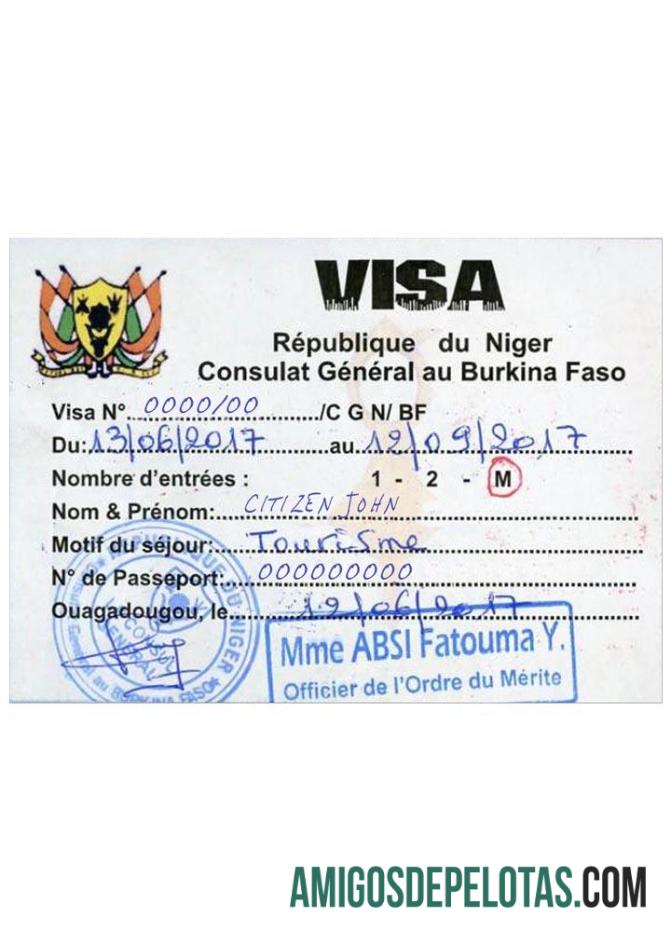 VISA
République du Niger
Consulat Général au Burkina Faso
Visa N°. 0000/00 ............/C G N/ BF
Du: 13/06/2017 ............au.. 12/09/2017
Nombre d'entrées : 1 - 2 - M
Nom & Prénom: CITIZEN JOHN
Motif du séjour: Tourisme
N° de Passeport: 000000000
Ouagadougou, le 12/06/2017
RÉPUBLIQUE DU NIGER
CONSUL
GÉNÉRAL
Général au BURKINA FASO
Mme ABSI Fatouma Y.
Officier de l'Ordre du Mérite
AMIGOSDEPELOTAS.COM